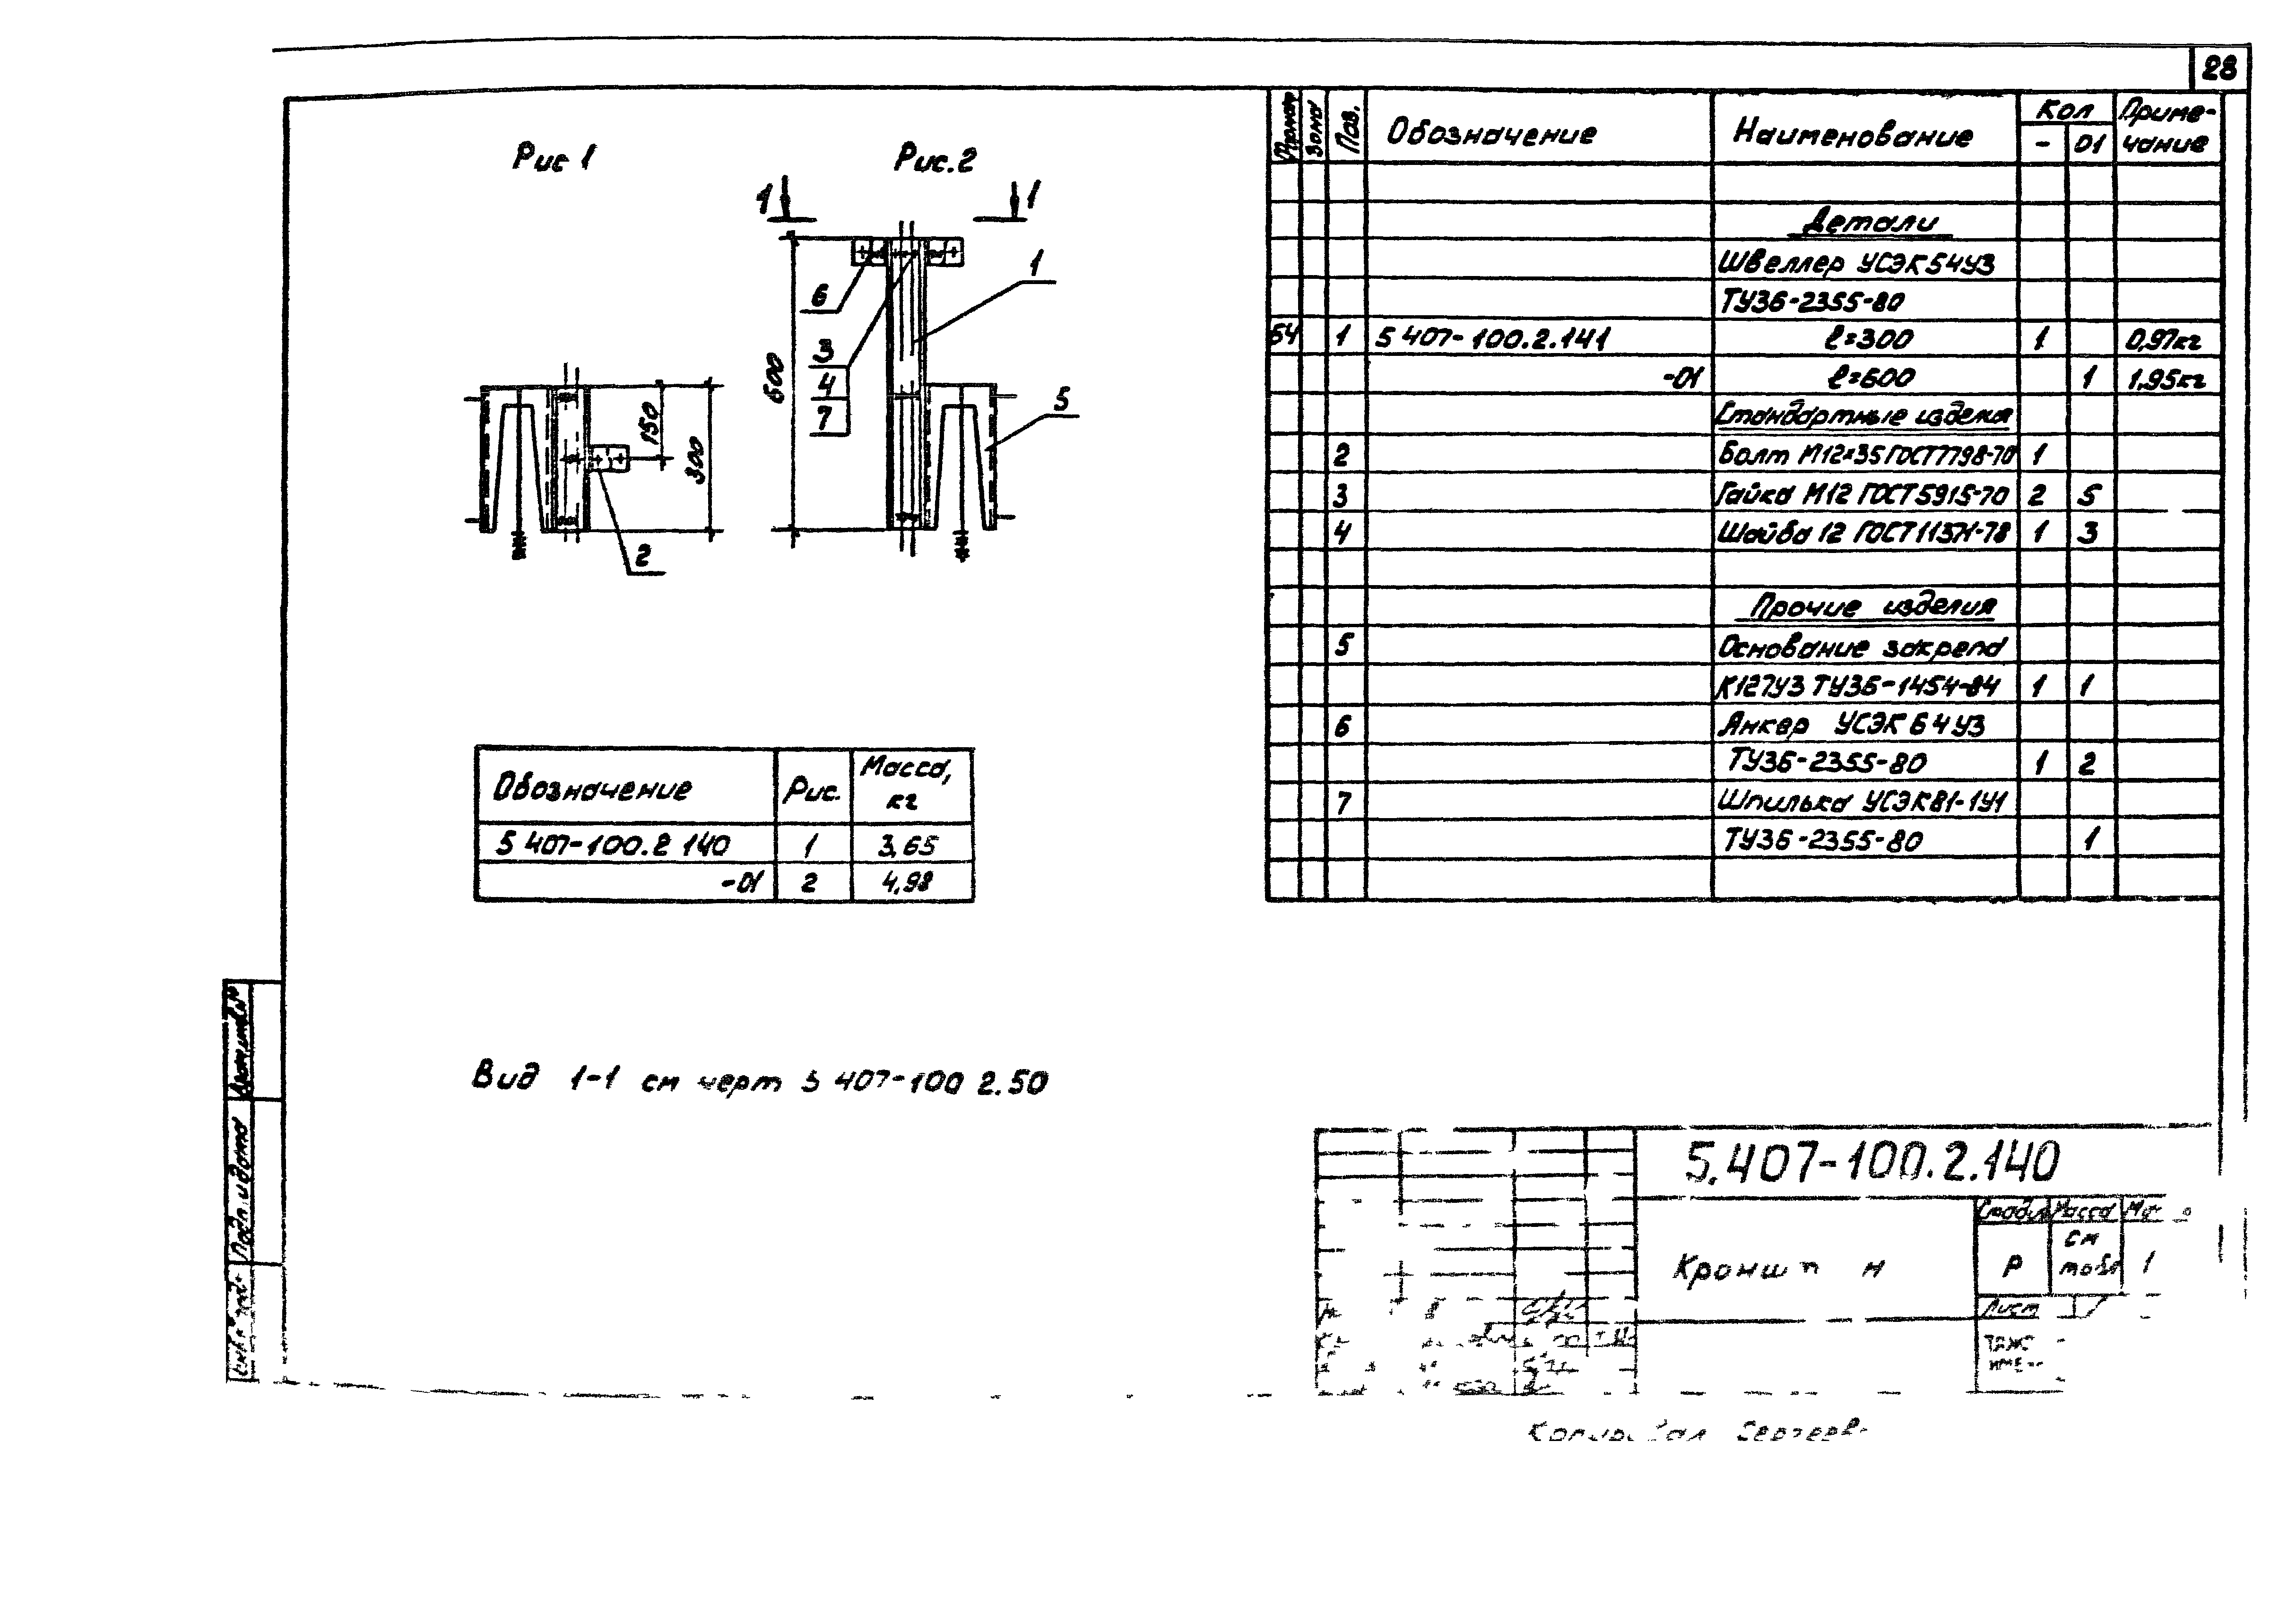 28
Рис 1
Рис.2
1 1
6
3
4
7
1
5
600
150
300
2
Формат Зона Поз. Обозначение Наименование Кол Приме-
- 01 чание
Детали
Швеллер УСЭК54У3
ТУ36-2355-80
Б4 1 5 407-100.2.141 ℓ=300 1 0,97кг
-01 ℓ=600 1 1,95кг
Стандартные изделия
2 Болт М12×35 ГОСТ7798-70 1
3 Гайка М12 ГОСТ5915-70 2 5
4 Шайба 12 ГОСТ11371-78 1 3
Прочие изделия
5 Основание закреп
К127У3 ТУ36-1454-84 1 1
6 Анкер УСЭК64У3
ТУ36-2355-80 1 2
7 Шпилька УСЭК81-1У1
ТУ36-2355-80 1
Обозначение Рис. Масса,
кг
5 407-100.2 140 1 3,65
-01 2 4,98
Вид 1-1 см черт 5 407-100 2.50
Подп. и дата
5.407-100.2.140
Масса
см
Р табл 1
Лист